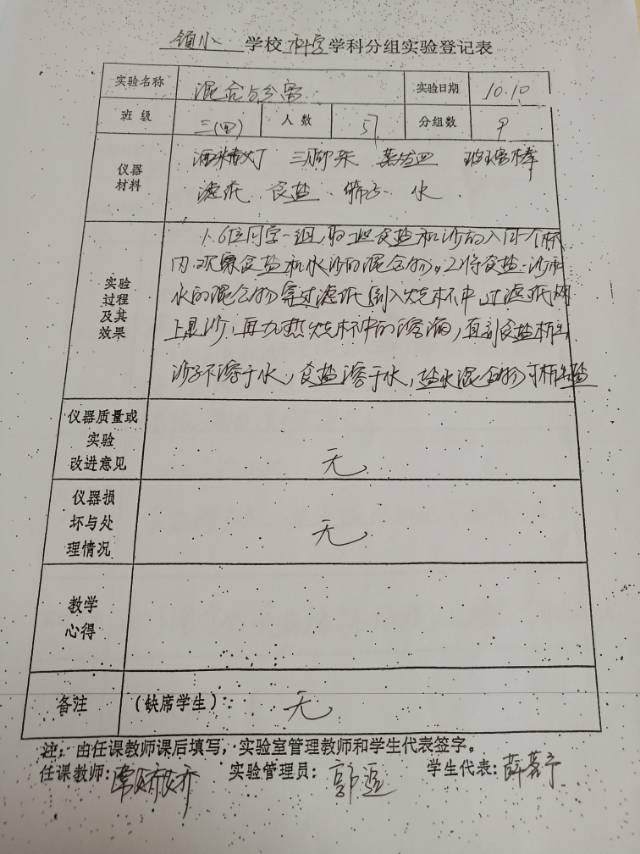 领小 学校 科学 学科分组实验登记表
实验名称 混合与分离 实验日期 10.10
班级 三(四) 人数 分组数 9
仪器材料 酒精灯 三脚架 蒸发皿 玻璃棒
滤纸 食盐 筛子 水
实验过程及其效果
1.6位同学一组,取一些食盐和沙的入同个杯
内,观察食盐和水沙的混合物。2.将食盐、沙和
水的混合物穿过滤纸倒入烧杯中,过滤纸网
上是沙,再加热烧杯中的溶液,直到食盐析出
沙子不溶于水,食盐溶于水,盐水混合物可析出盐
仪器质量或实验改进意见 无
仪器损坏与处理情况 无
教学心得
备注 (缺席学生): 无
注:由任课教师课后填写,实验室管理教师和学生代表签字。
任课教师: 实验管理员:郭 学生代表:薛